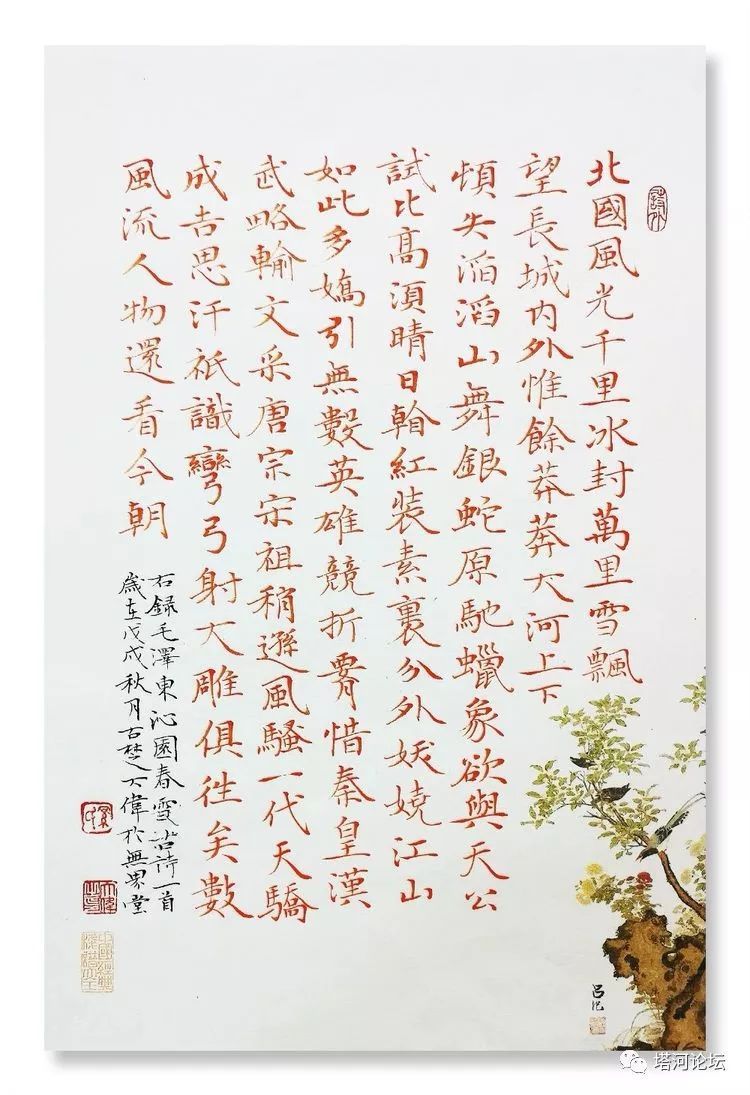 北國風光千里冰封萬里雪飄
望長城内外惟餘莽莽大河上下
頓失滔滔山舞銀蛇原馳蠟象欲與天公
試比高須晴日看紅装素裹分外妖嬈江山
如此多嬌引無數英雄競折腰惜秦皇漢
武略輸文采唐宗宋祖稍遜風騷一代天驕
成吉思汗祇識彎弓射大雕俱往矣數
風流人物還看今朝
右録毛澤東沁園春雪 诗一首
歲在戊戌秋月古楚大偉於無界堂
吕纪
塔河论坛